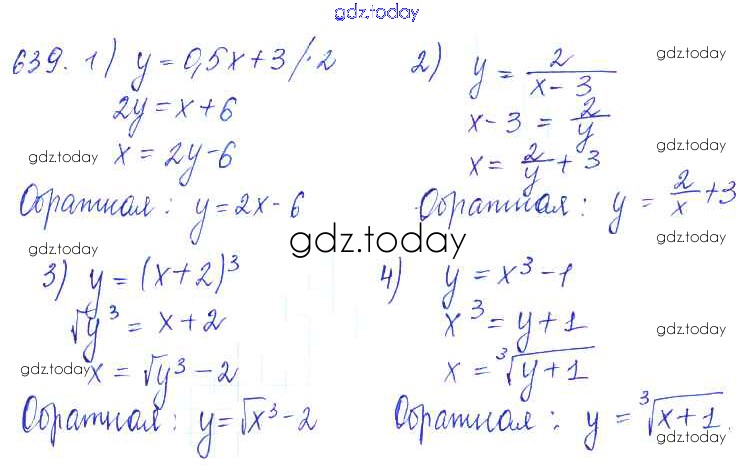 gdz.today
639. 1) y = 0,5x + 3 /·2
2y = x + 6
x = 2y - 6
Обратная: y = 2x - 6
2) y = 2/(x - 3)
x - 3 = 2/y
x = 2/y + 3
Обратная: y = 2/x + 3
3) y = (x + 2)³
√y³ = x + 2
x = √y³ - 2
Обратная: y = √x³ - 2
4) y = x³ - 1
x³ = y + 1
x = ³√(y + 1)
Обратная: y = ³√(x + 1).
gdz.today
gdz.today
gdz.today
gdz.today
gdz.today
gdz.today
gdz.today
gdz.today
gdz.today